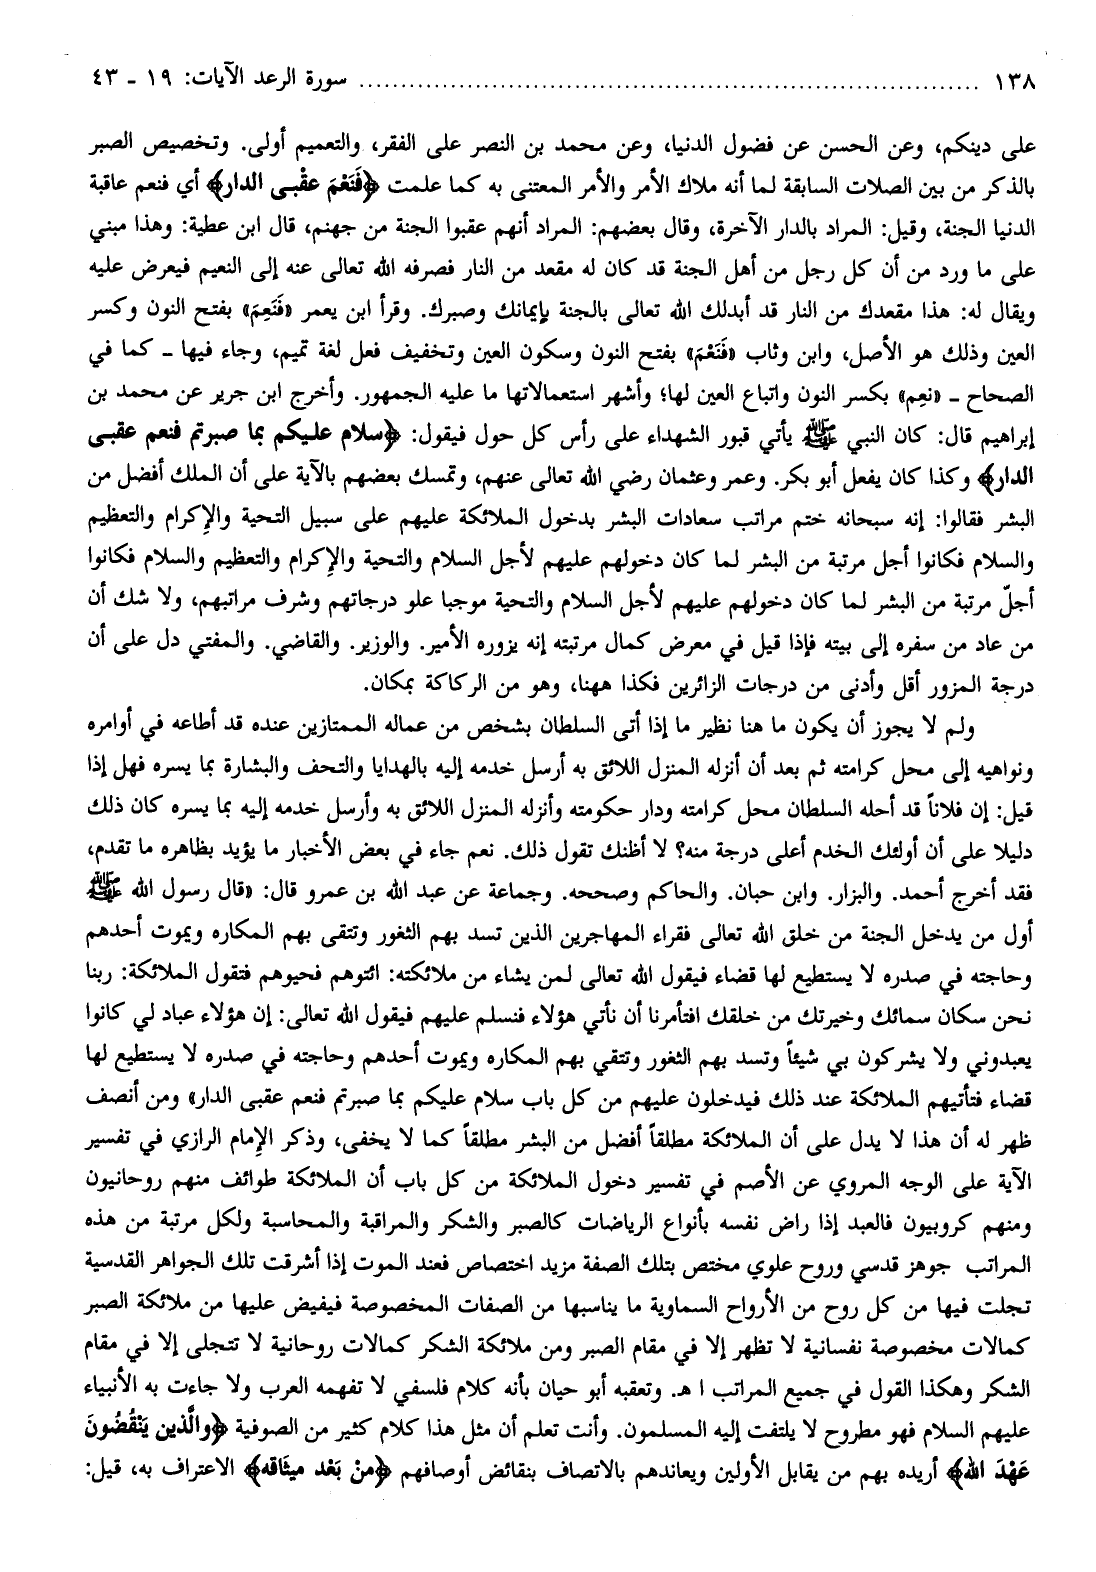 ١٣٨ ........................................ سورة الرعد الآيات: ١٩ - ٤٣
على دينكم، وعن الحسن عن فضول الدنيا، وعن محمد بن النصر على الفقر، والتعميم أولى. وتخصيص الصبر
بالذكر من بين الصلات السابقة لما أنه ملاك الأمر والأمر المعتنى به كما علمت ﴿فَنَعْمَ عقْبى الدار﴾ أي فنعم عاقبة
الدنيا الجنة، وقيل: المراد بالدار الآخرة، وقال بعضهم: المراد أنهم عقبوا الجنة من جهنم، قال ابن عطية: وهذا مبني
على ما ورد من أن كل رجل من أهل الجنة قد كان له مقعد من النار فصرفه الله تعالى عنه إلى النعيم فيعرض عليه
ويقال له: هذا مقعدك من النار قد أبدلك الله تعالى بالجنة بإيمانك وصبرك. وقرأ ابن يعمر «فَنَعِمَ» بفتح النون وكسر
العين وذلك هو الأصل، وابن وثاب «فَنَعْمَ» بفتح النون وسكون العين وتخفيف فعل لغة تميم، وجاء فيها - كما في
الصحاح - «نعِم» بكسر النون واتباع العين لها؛ وأشهر استعمالاتها ما عليه الجمهور. وأخرج ابن جرير عن محمد بن
إبراهيم قال: كان النبي ﷺ يأتي قبور الشهداء على رأس كل حول فيقول: ﴿سلام عليكم بما صبرتم فنعم عقبى
الدار﴾ وكذا كان يفعل أبو بكر. وعمر وعثمان رضي الله تعالى عنهم، وتمسك بعضهم بالآية على أن الملك أفضل من
البشر فقالوا: إنه سبحانه ختم مراتب سعادات البشر بدخول الملائكة عليهم على سبيل التحية والإكرام والتعظيم
والسلام فكانوا أجل مرتبة من البشر لما كان دخولهم عليهم لأجل السلام والتحية والإكرام والتعظيم والسلام فكانوا
أجلّ مرتبة من البشر لما كان دخولهم عليهم لأجل السلام والتحية موجبا علو درجاتهم وشرف مراتبهم، ولا شك أن
من عاد من سفره إلى بيته فإذا قيل في معرض كمال مرتبته إنه يزوره الأمير. والوزير. والقاضي. والمفتي دل على أن
درجة المزور أقل وأدنى من درجات الزائرين فكذا ههنا، وهو من الركاكة بمكان.
ولم لا يجوز أن يكون ما هنا نظير ما إذا أتى السلطان بشخص من عماله الممتازين عنده قد أطاعه في أوامره
ونواهيه إلى محل كرامته ثم بعد أن أنزله المنزل اللائق به أرسل خدمه إليه بالهدايا والتحف والبشارة بما يسره فهل إذا
قيل: إن فلاناً قد أحله السلطان محل كرامته ودار حكومته وأنزله المنزل اللائق به وأرسل خدمه إليه بما يسره كان ذلك
دليلا على أن أولئك الخدم أعلى درجة منه؟ لا أظنك تقول ذلك. نعم جاء في بعض الأخبار ما يؤيد بظاهره ما تقدم،
فقد أخرج أحمد. والبزار. وابن حبان. والحاكم وصححه. وجماعة عن عبد الله بن عمرو قال: «قال رسول الله ﷺ
أول من يدخل الجنة من خلق الله تعالى فقراء المهاجرين الذين تسد بهم الثغور وتتقى بهم المكاره ويموت أحدهم
وحاجته في صدره لا يستطيع لها قضاء فيقول الله تعالى لمن يشاء من ملائكته: ائتوهم فحيوهم فتقول الملائكة: ربنا
نحن سكان سمائك وخيرتك من خلقك افتأمرنا أن نأتي هؤلاء فنسلم عليهم فيقول الله تعالى: إن هؤلاء عباد لي كانوا
يعبدوني ولا يشركون بي شيئاً وتسد بهم الثغور وتتقي بهم المكاره ويموت أحدهم وحاجته في صدره لا يستطيع لها
قضاء فتأتيهم الملائكة عند ذلك فيدخلون عليهم من كل باب سلام عليكم بما صبرتم فنعم عقبى الدار» ومن أنصف
ظهر له أن هذا لا يدل على أن الملائكة مطلقاً أفضل من البشر مطلقاً كما لا يخفى، وذكر الإمام الرازي في تفسير
الآية على الوجه المروي عن الأصم في تفسير دخول الملائكة من كل باب أن الملائكة طوائف منهم روحانيون
ومنهم كروبيون فالعبد إذا راض نفسه بأنواع الرياضات كالصبر والشكر والمراقبة والمحاسبة ولكل مرتبة من هذه
المراتب جوهز قدسي وروح علوي مختص بتلك الصفة مزيد اختصاص فعند الموت إذا أشرقت تلك الجواهر القدسية
تجلت فيها من كل روح من الأرواح السماوية ما يناسبها من الصفات المخصوصة فيفيض عليها من ملائكة الصبر
كمالات مخصوصة نفسانية لا تظهر إلا في مقام الصبر ومن ملائكة الشكر كمالات روحانية لا تتجلى إلا في مقام
الشكر وهكذا القول في جميع المراتب ا هـ. وتعقبه أبو حيان بأنه كلام فلسفي لا تفهمه العرب ولا جاءت به الأنبياء
عليهم السلام فهو مطروح لا يلتفت إليه المسلمون. وأنت تعلم أن مثل هذا كلام كثير من الصوفية ﴿والَّذين يَنْقُضُونَ
عَهْدَ الله﴾ أريده بهم من يقابل الأولين ويعاندهم بالاتصاف بنقائض أوصافهم ﴿منْ بَعْد ميثَاقه﴾ الاعتراف به، قيل: